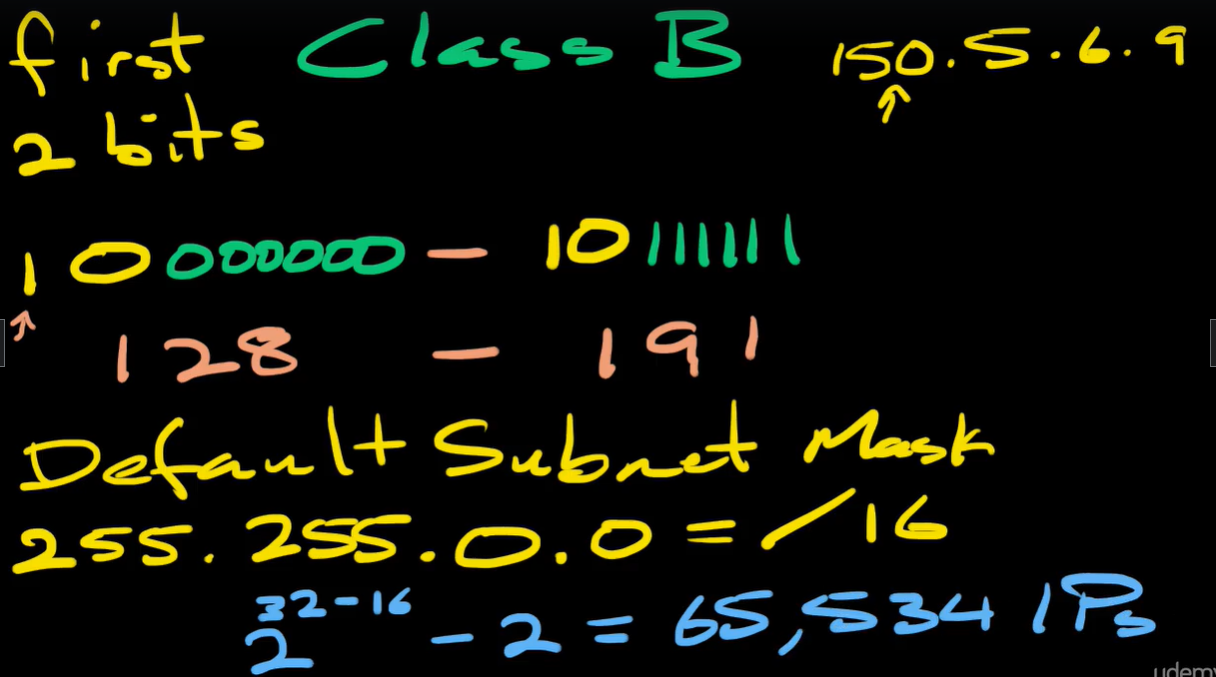 first Class B 150.5.6.9
2 bits
10000000 - 10111111
128 - 191
Default Subnet Mask
255.255.0.0 = /16
2^32-16 - 2 = 65,534 IPs
udemy